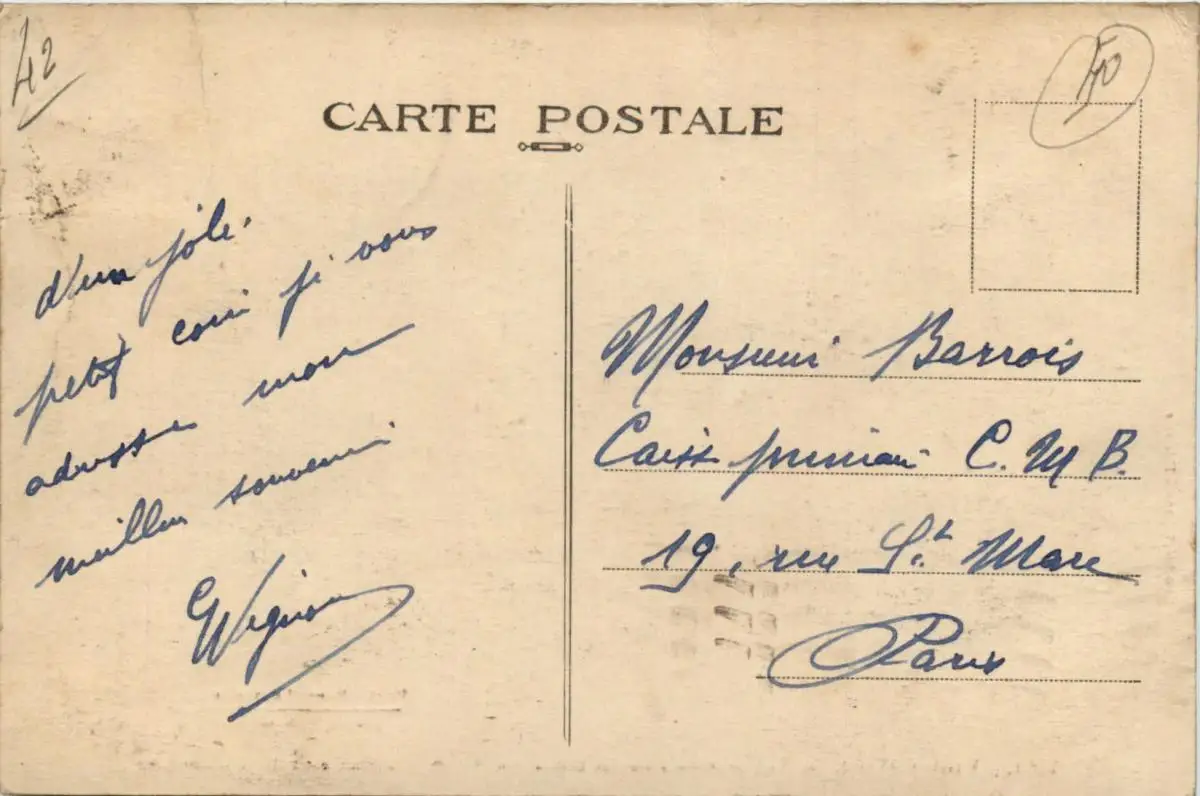 42
50
CARTE POSTALE
d'un joli
petit coin je vous
adresse mon
meilleur souvenir
Monsieur Barrois
Caisse primaire C. M B.
19, rue St Marc
Paris